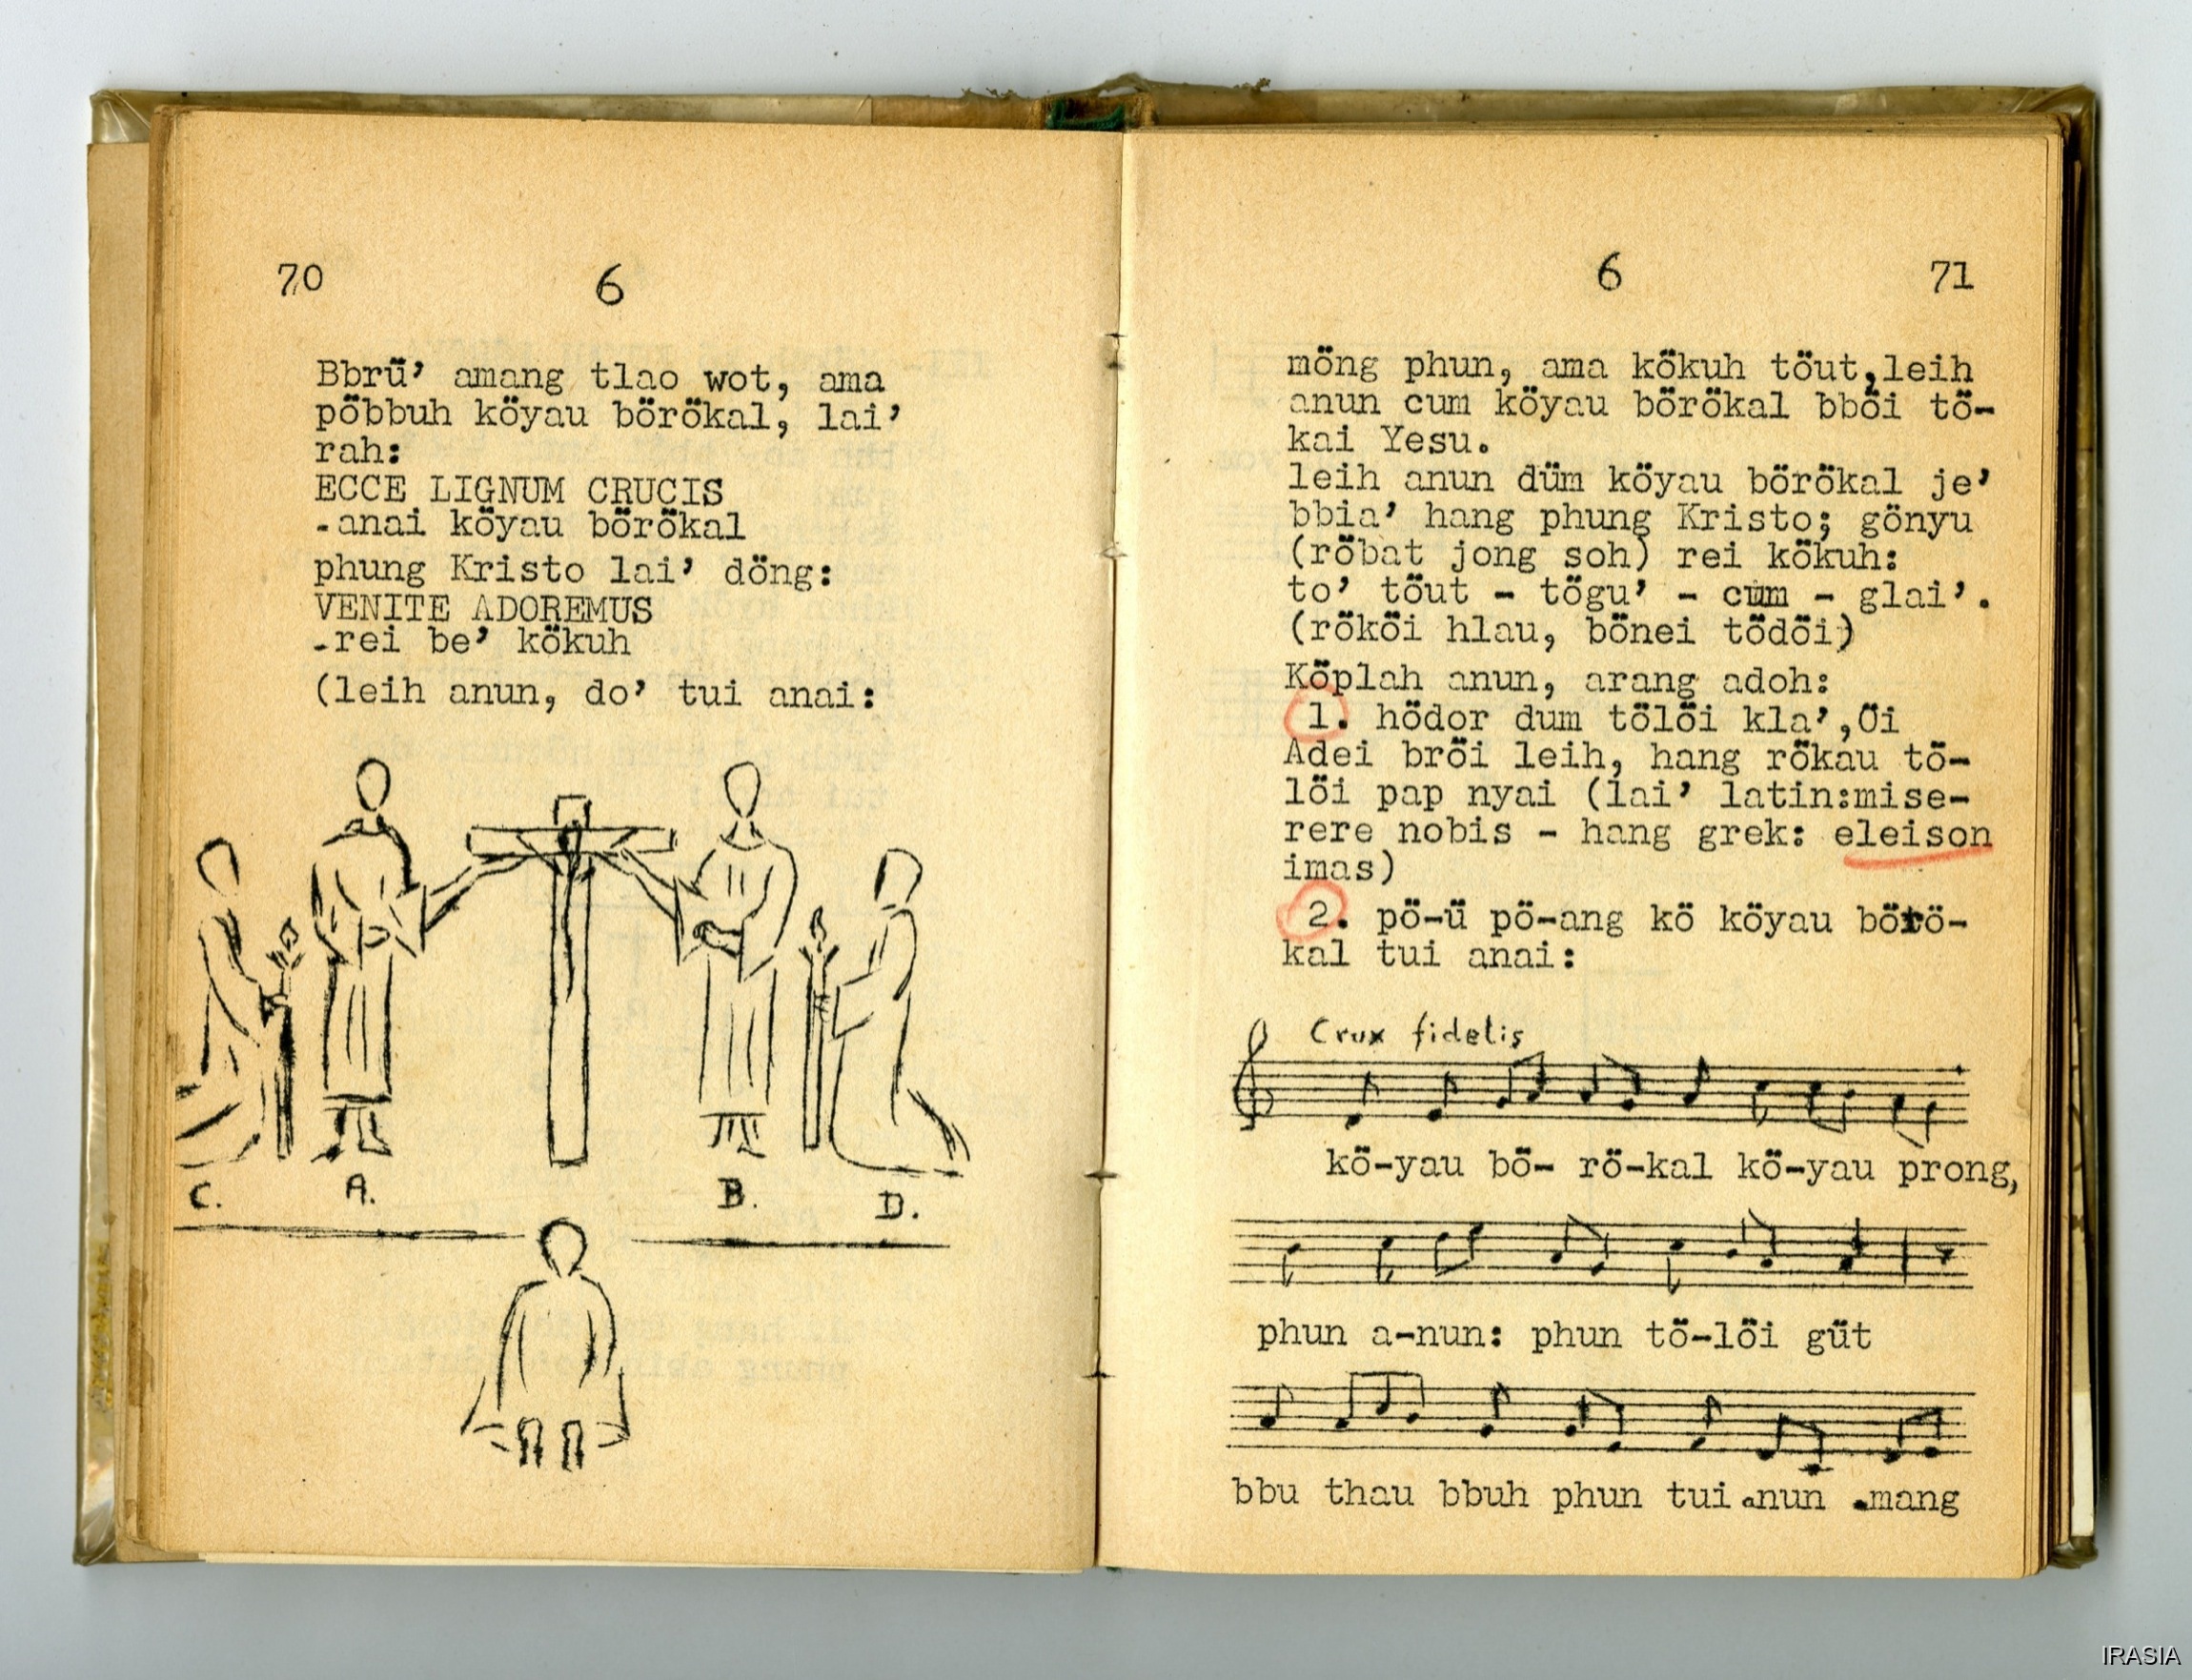 70
6
Bbrü’ amang tlao wot, ama
pöbbuh köyau börökal, lai’
rah:
ECCE LIGNUM CRUCIS
-anai köyau börökal
phung Kristo lai’ döng:
VENITE ADOREMUS
-rei be’ kökuh
(leih anun, do’ tui anai:
C. A. B. D.
6
71
möng phun, ama kökuh töut,leih
anun cum köyau börökal bböi tö-
kai Yesu.
leih anun düm köyau börökal je’
bbia’ hang phung Kristo; gönyu
(röbat jong soh) rei kökuh:
to’ töut - tögu’ - cum - glai’.
(rököi hlau, bönei tödöi)
Köplah anun, arang adoh:
1. hödor dum tölöi kla’,Öi
Adei bröi leih, hang rökau tö-
löi pap nyai (lai’ latin:mise-
rere nobis - hang grek: eleison
imas)
2. pö-ü pö-ang kö köyau börö-
kal tui anai:
Crux fidelis
kö-yau bö- rö-kal kö-yau prong,
phun a-nun: phun tö-löi güt
bbu thau bbuh phun tui anun amang
IRASIA